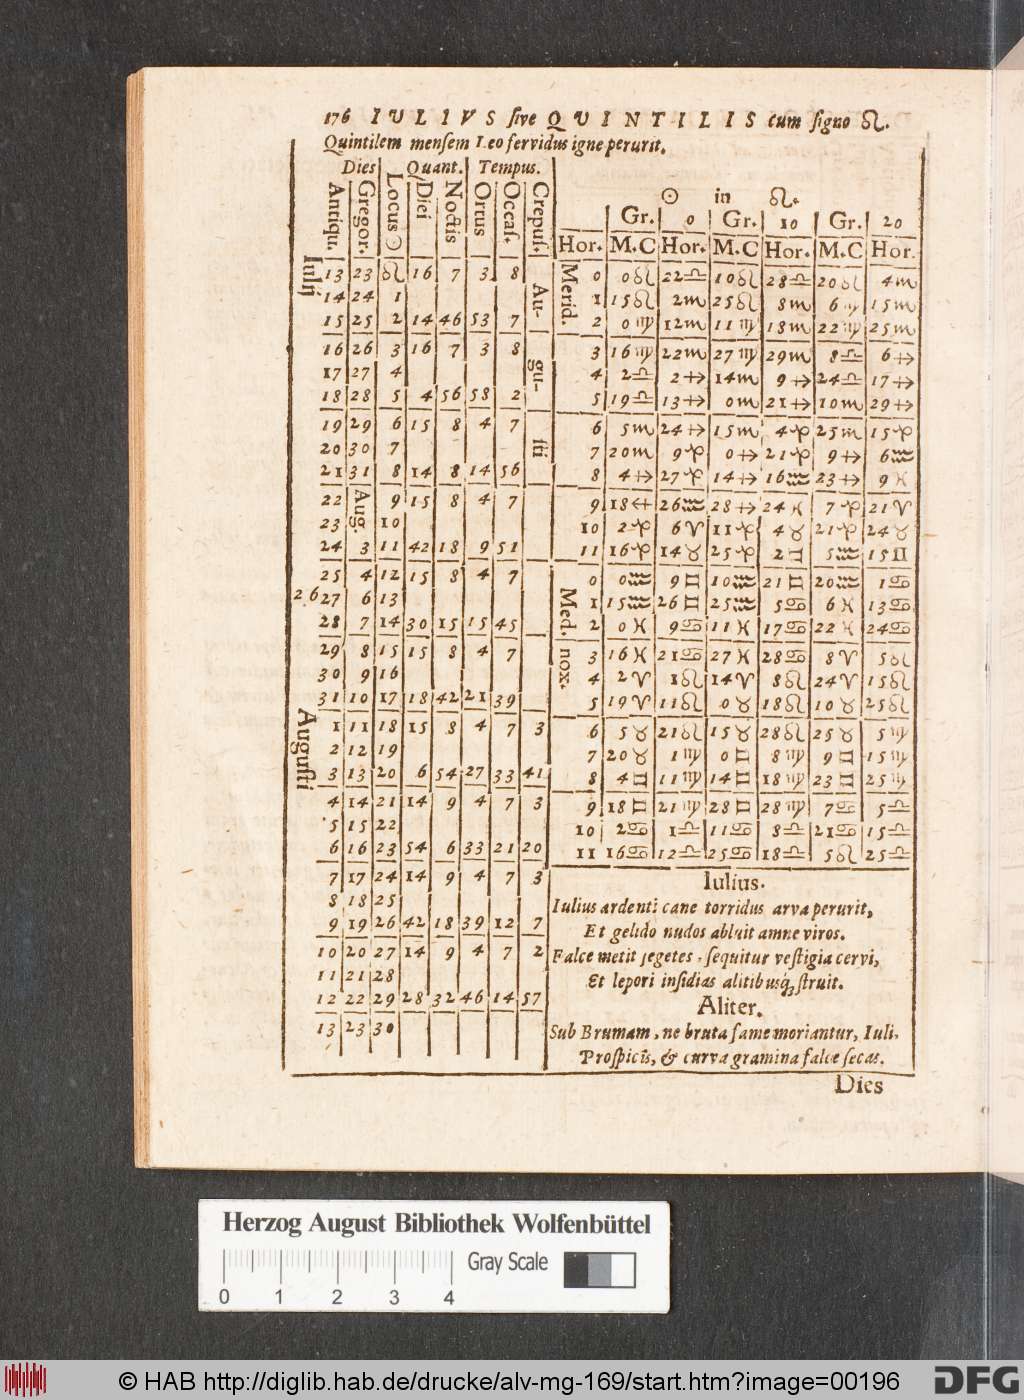 176 IULIUS sive QUINTILIS cum signo ♌.
Quintilem mensem Leo fervidus igne perurit.
Dies Quant. Tempus.
Antiqu. Gregor. Locus ☉ Diei Noctis Ortus Occas. Crepus.
Iulij 13 23 ♌ 16 7 3 8 Au-
14 24 1
15 25 2 14 46 53 7
16 26 3 16 7 3 8 gu-
17 27 4
18 28 5 4 56 58 2
19 29 6 15 8 4 7 sti
20 30 7
21 31 8 14 8 14 56
22 Aug. 9 15 8 4 7
23 10
24 3 11 42 18 9 51
25 4 12 15 8 4 7
2627 6 13
28 7 14 30 15 15 45
29 8 15 15 8 4 7
30 9 16
31 10 17 18 42 21 39
Augusti 1 11 18 15 8 4 7 3
2 12 19
3 13 20 6 54 27 33 41
4 14 21 14 9 4 7 3
5 15 22
6 16 23 54 6 33 21 20
7 17 24 14 9 4 7 3
8 18 25
9 19 26 42 18 39 12 7
10 20 27 14 9 4 7 2
11 21 28
12 22 29 28 32 46 14 57
13 23 30
☉ in ♌.
Gr. 0 Gr. 10 Gr. 20
Hor. M.C Hor. M.C Hor. M.C Hor.
Merid. 0 0♌ 22♎ 10♌ 28♎ 20♌ 4♏
1 15♌ 2♏ 25♌ 8♏ 6♍ 15♏
2 0♍ 12♏ 11♍ 18♏ 22♍ 25♏
3 16♍ 22♏ 27♍ 29♏ 8♎ 6♐
4 2♎ 2♐ 14♏ 9♐ 24♎ 17♐
5 19♎ 13♐ 0♏ 21♐ 10♏ 29♐
6 5♏ 24♐ 15♏ 4♑ 25♏ 15♑
7 20♏ 9♑ 0♐ 21♑ 9♐ 6♒
8 4♐ 27♑ 14♐ 16♒ 23♐ 9♓
9 18♐ 26♒ 28♐ 24♓ 7♑ 21♈
10 2♑ 6♈ 11♑ 4♉ 21♑ 24♉
11 16♑ 14♉ 25♑ 2♊ 5♒ 15♊
Med. nox. 0 0♒ 9♊ 10♒ 21♊ 20♒ 1♋
1 15♒ 26♊ 25♒ 5♋ 6♓ 13♋
2 0♓ 9♋ 11♓ 17♋ 22♓ 24♋
3 16♓ 21♋ 27♓ 28♋ 8♈ 5♌
4 2♈ 1♌ 14♈ 8♌ 24♈ 15♌
5 19♈ 11♌ 0♉ 18♌ 10♉ 25♌
6 5♉ 21♌ 15♉ 28♌ 25♉ 5♍
7 20♉ 1♍ 0♊ 8♍ 9♊ 15♍
8 4♊ 11♍ 14♊ 18♍ 23♊ 25♍
9 18♊ 21♍ 28♊ 28♍ 7♋ 5♎
10 2♋ 1♎ 11♋ 8♎ 21♋ 15♎
11 16♋ 12♎ 25♋ 18♎ 5♌ 25♎
Iulius.
Iulius ardenti cane torridus arva perurit,
Et gelido nudos abluit amne viros.
Falce metit segetes, sequitur vestigia cervi,
Et lepori insidias alitibusq; struit.
Aliter.
Sub Brumam, ne bruta fame moriantur, Iuli.
Prospicis, & curva gramina falce secas.
Dies
Herzog August Bibliothek Wolfenbüttel
Gray Scale
0 1 2 3 4
© HAB http://diglib.hab.de/drucke/alv-mg-169/start.htm?image=00196
DFG